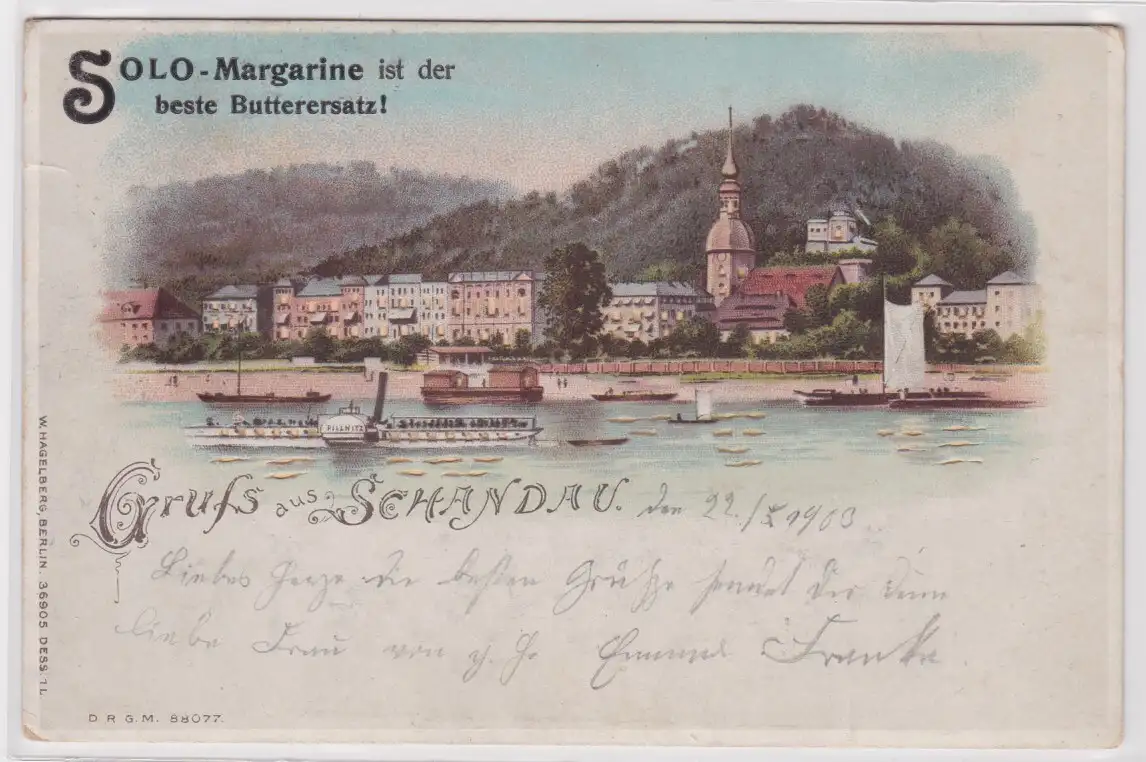 SOLO-Margarine ist der
beste Butterersatz!
PILLNITZ
Gruſs aus SCHANDAU. den 22./X 1903
Liebes Herze die besten Grüße sendet Dir deine
liebe Frau von H. Franke
W. HAGELBERG, BERLIN. 36905 DESS. 11.
D R G.M. 88077.